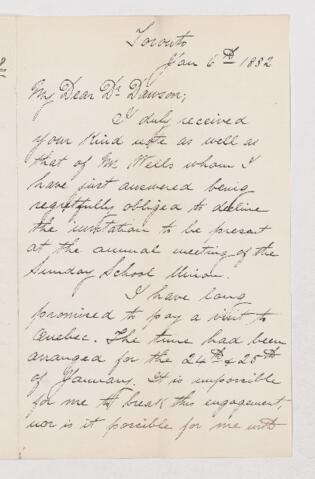 Toronto
Jan 6th 1882
My Dear Dr Dawson;
I duly received
your kind note as well as
that of Mr Wells whom I
have just answered being
regretfully obliged to decline
the invitation to be present
at the annual meeting of the
Sunday School Union.
I have long
promised to pay a visit to
Quebec. The time had been
arranged for the 24th & 25th
of January. It is impossible
for me to break this engagement,
nor is it possible for me with